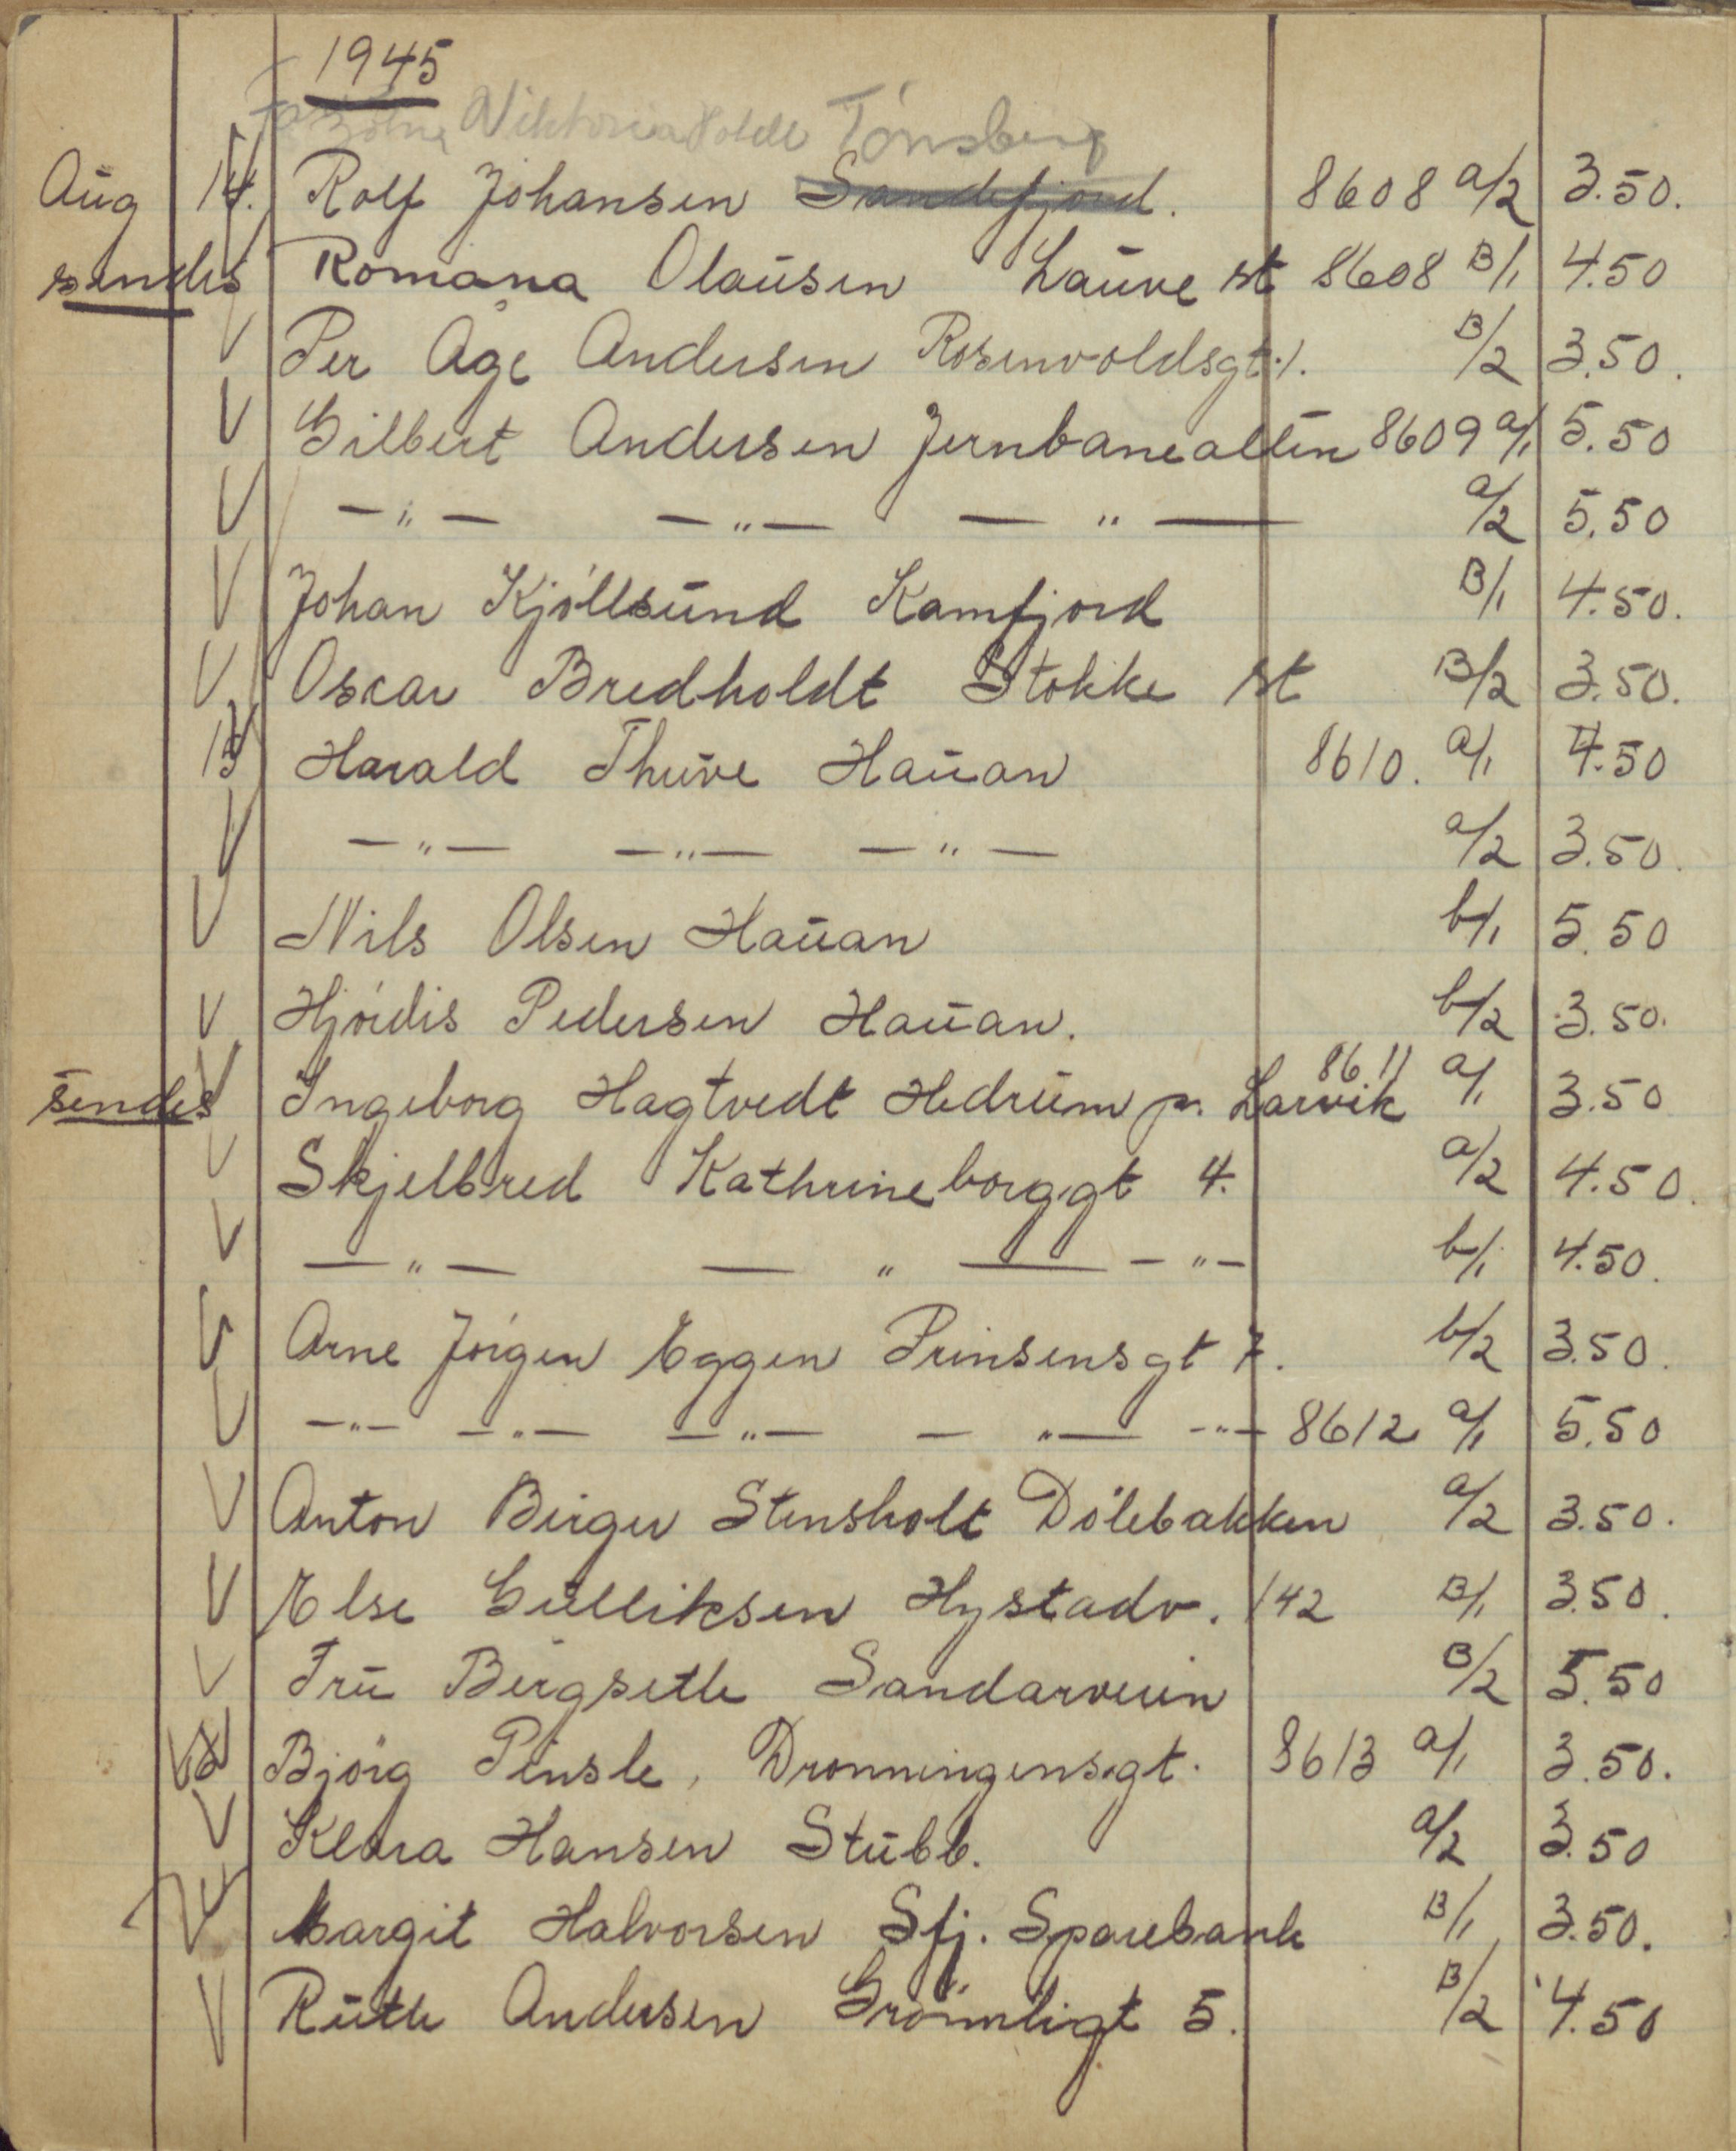 1945
Viktoria Hotell Tönsberg
Aug 14. Rolf Johansen Sandefjord. 8608 a/2 3.50.
sendes Romana Olaūsen Laūve st 8608 B/1 4.50
V Per Åge Andersen Rosenvoldsgt 1. B/2 3.50.
V Gilbert Andersen Jernbanealleen 8609 a/1 5.50
V —„— —„— — „ — a/2 5.50
V Johan Kjöllsūnd Kamfjord B/1 4.50.
V Oscar Bredholdt Stokke st B/2 3.50.
15 Harald Thūve Haūan 8610. a/1 4.50
V —„— —„— —„— a/2 3.50.
V Nils Olsen Haūan b/1 5.50
V Hjördis Pedersen Haūan. b/2 3.50.
sendes V Ingeborg Hagtvedt Hedrūm p. Larvik 8611 a/1 3.50
V Skjelbred Kathrineborggt 4. a/2 4.50.
V —„— — „ — —„— b/1 4.50.
V Arne Jörgen Eggen Prinsensgt 7. b/2 3.50.
V —„— —„— —„— — „— —„— 8612 a/1 5.50
V Anton Birger Stensholt Dölebakken a/2 3.50.
V Else Gūlliksen Hystadv. 142 B/1 3.50.
V Frū Bergseth Sandarveien B/2 5.50
V Björg Pinsle, Dronningensgt. 8613 a/1 3.50.
V Klara Hansen Stūbb. a/2 3.50
V Margit Halvorsen Sfj. Sparebank B/1 3.50.
V Rūth Andersen Grönnligt 5. B/2 4.50